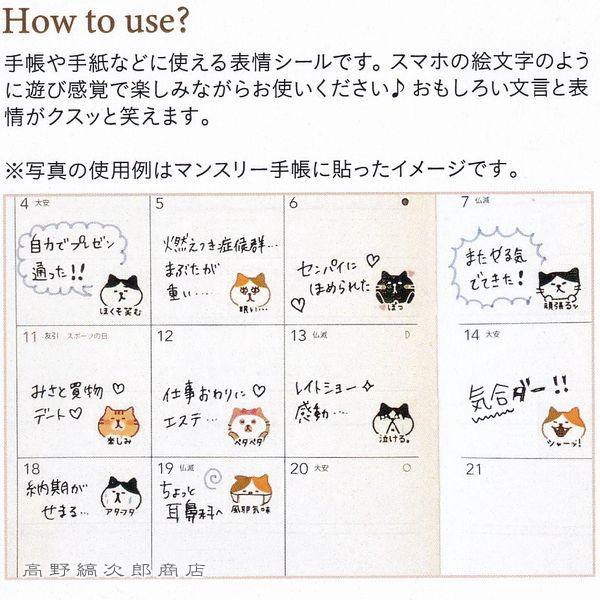 How to use?
手帳や手紙などに使える表情シールです。スマホの絵文字のよう
に遊び感覚で楽しみながらお使いください♪おもしろい文言と表
情がクスッと笑えます。
※写真の使用例はマンスリー手帳に貼ったイメージです。
4 大安
自力でプレゼン
通った!!
ほくそ笑む
5
燃えつき症候群…
まぶたが
重い….
眠い…
6
センパイに
ほめられた
ぽっ
7 仏滅
またやる気
でてきた!
頑張るッ
11 友引 スポーツの日
みさと買物
デート♡
楽しみ
12
仕事おわりに♡
エステ…
ペタペタ
13 仏滅 D
レイトショー✧
感動….
泣ける。
14 大安
気合ダー!!
シャーッ!
18
納期が
せまる…
アタフタ
19 仏滅
ちょっと
耳鼻科へ
風邪気味
20 大安
21
高野縞次郎商店